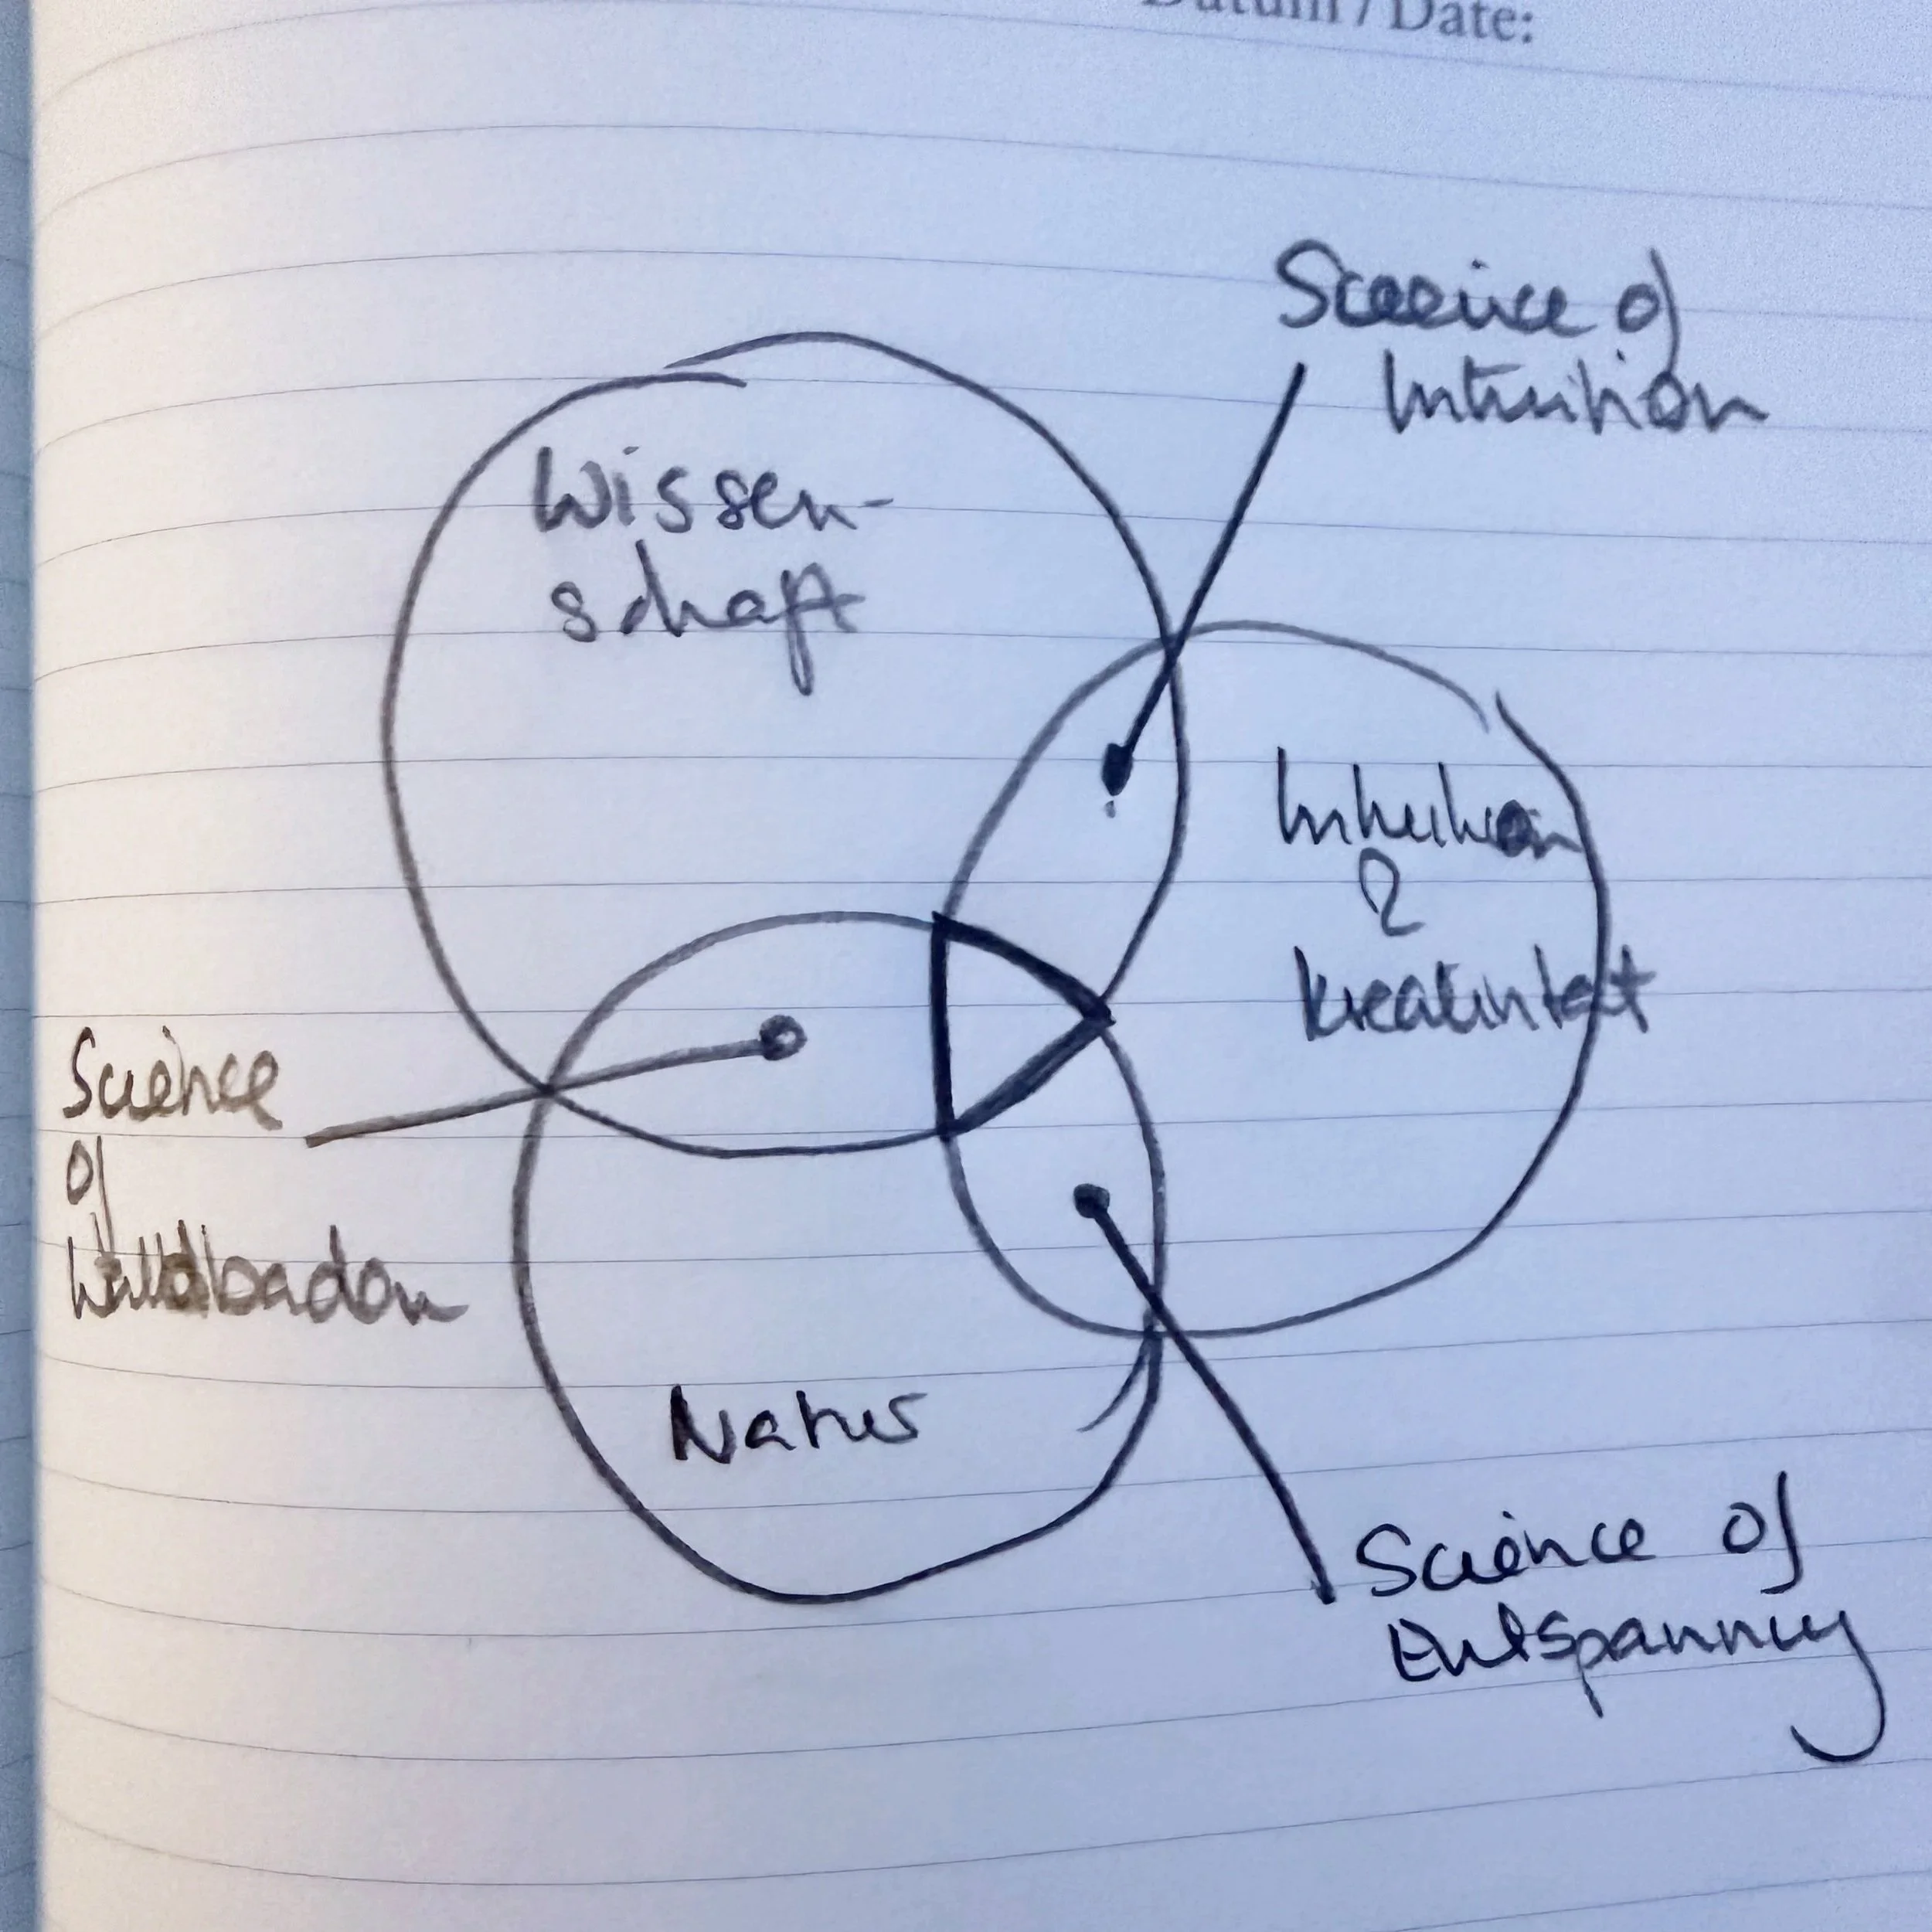 Datum / Date:
Science of
Intuition
Wissen-
schaft
Intuition
&
Kreativität
Science
of
Waldbaden
Natur
Science of
Entspannung